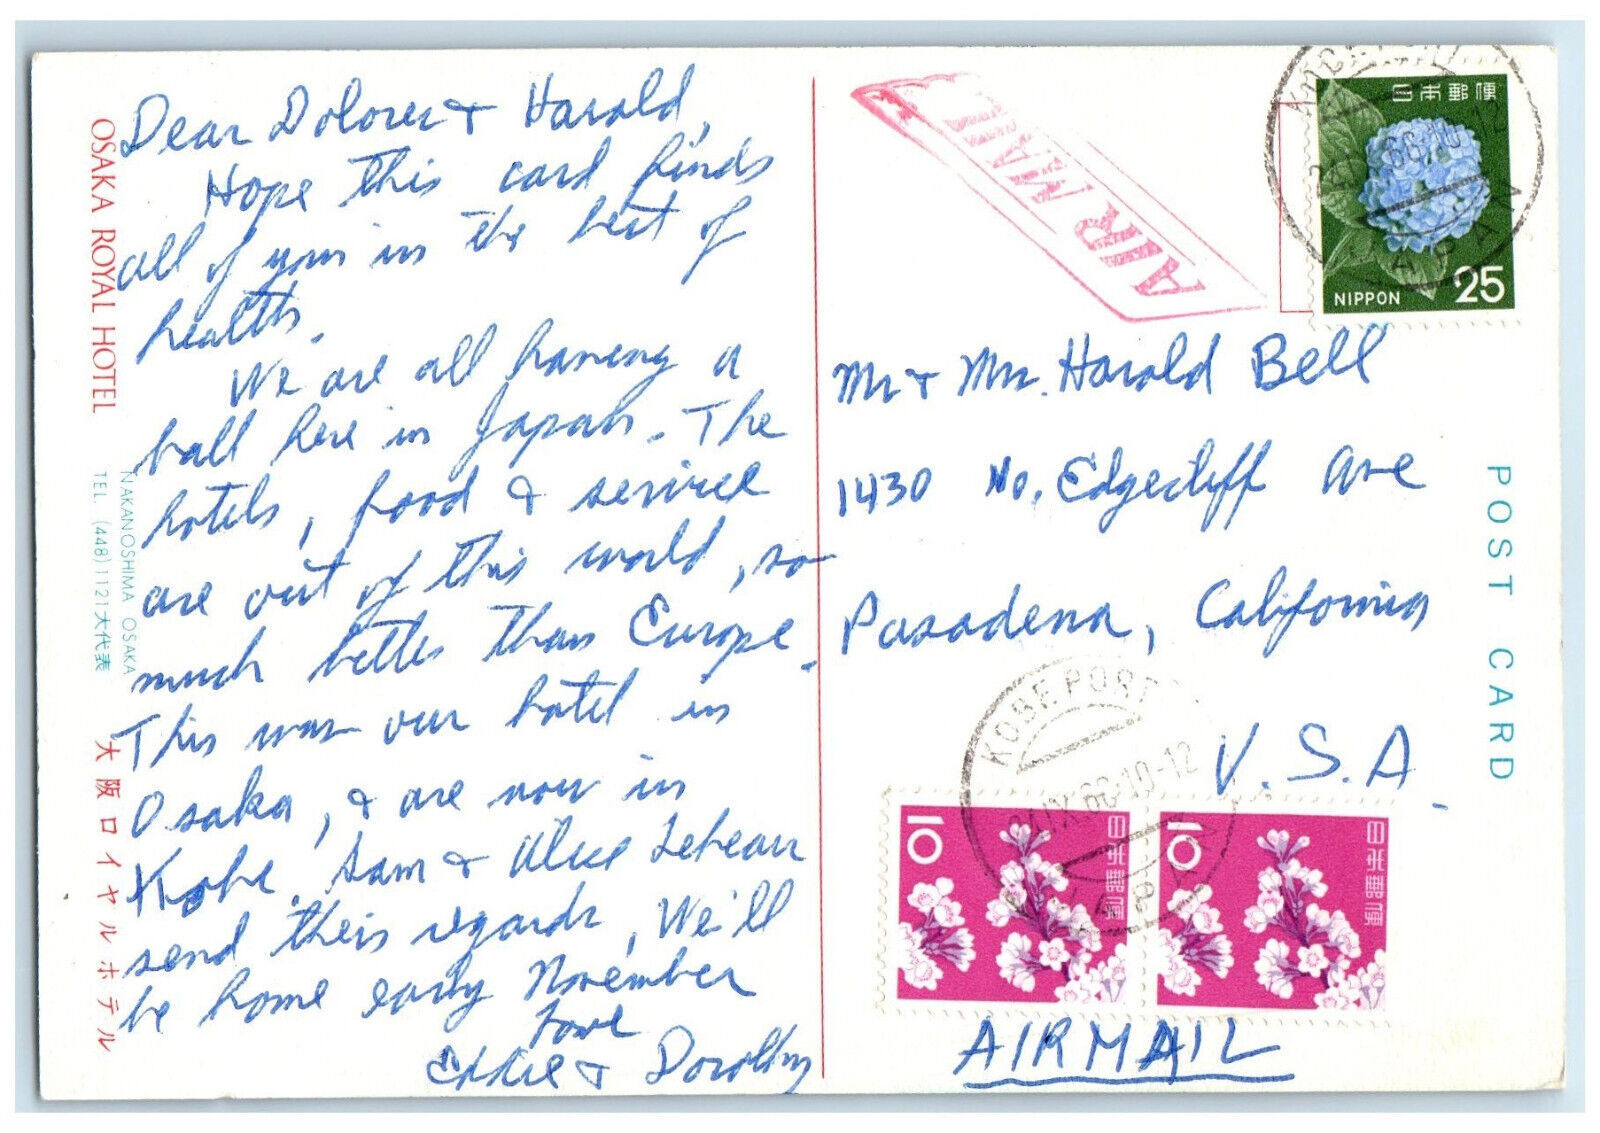 Dear Dolores & Harold,
Hope this card finds
all of you in the best of
health.
We are all having a
ball here in Japan. The
hotels, food & service
are out of this world, so
much better than Europe.
This was our hotel in
Osaka, & are now in
Kobe. Sam & Alice
send their regards, We'll
be home early November
Love
Eddie & Dorothy
OSAKA ROYAL HOTEL
NAKANOSHIMA OSAKA
TEL (448)1121大代表
大阪ロイヤルホテル
AIR MAIL
日本郵便
NIPPON 25
JAPAN
Mr & Mrs. Harold Bell
1430 No. Edgecliff Ave
Pasadena, California
U.S.A.
POST CARD
KOBE PORT
IX.66.10-12
JAPAN
10 日本郵便
10 日本郵便
AIRMAIL